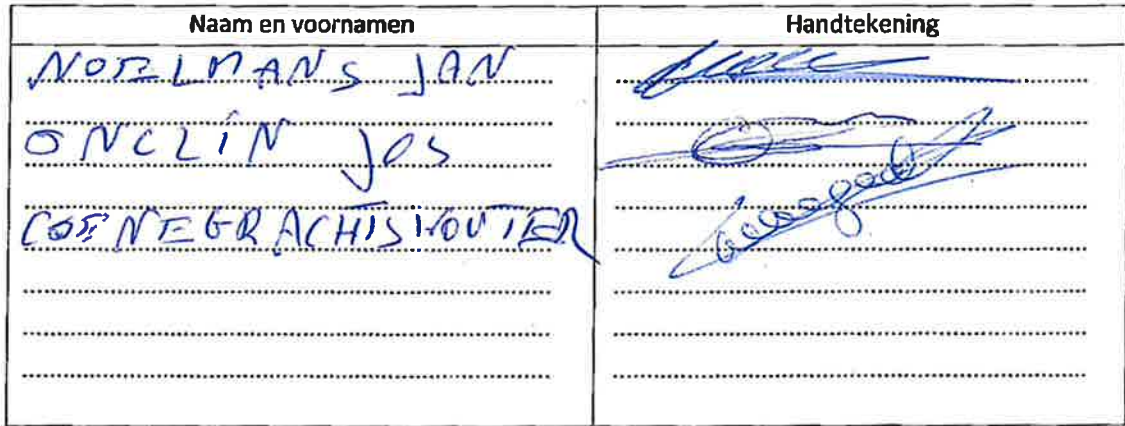 Naam en voornamen Handtekening
NOELMANS JAN
ONCLIN JOS
COENEGRACHTS WOUTER